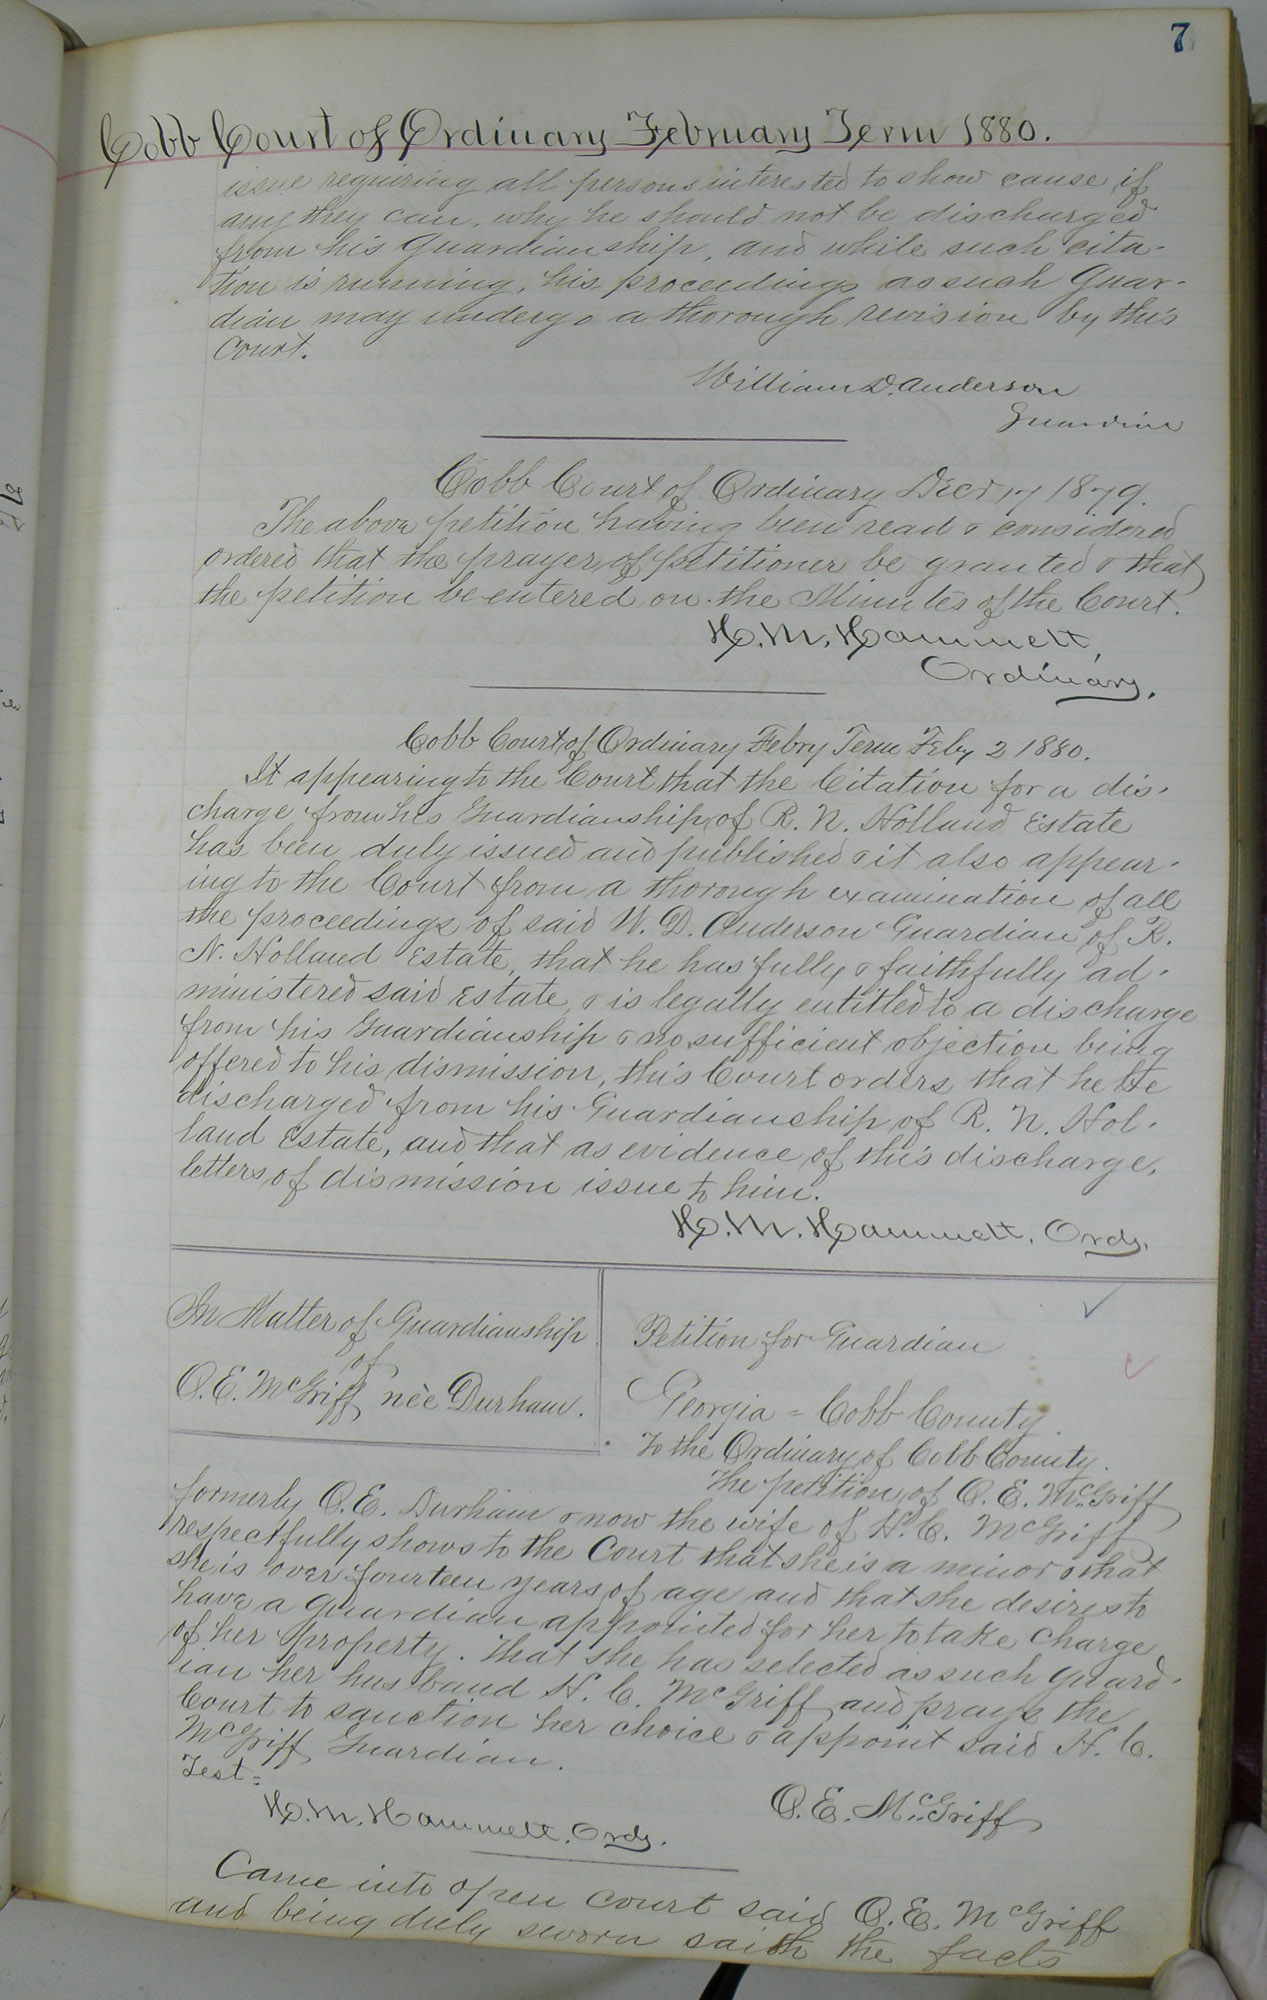 7
Cobb Court of Ordinary February Term 1880.
issue requiring all persons interested to show cause, if
any they can, why he should not be discharged
from his Guardianship, and while such cita-
tion is running, his proceedings as such Guar-
dian may undergo a thorough revision by this
Court.
William D. Anderson
Guardian
Cobb Court of Ordinary Decr 17 1879.
The above petition having been read & considered
ordered that the prayer of petitioner be granted & that
the petition be entered on the Minutes of the Court.
H. M. Hammett,
Ordinary.
Cobb Court of Ordinary Febry Term Feby 2 1880.
It appearing to the Court that the Citation for a dis-
charge from his Guardianship of R. N. Holland Estate
has been duly issued and published & it also appear-
ing to the Court from a thorough examination of all
the proceedings of said W. D. Anderson Guardian of R.
N. Holland Estate, that he has fully & faithfully ad-
ministered said Estate, & is legally entitled to a discharge
from his Guardianship & no sufficient objection being
offered to his dismission, this Court orders that he be
discharged from his Guardianship of R. N. Hol-
land Estate, and that as evidence of this discharge,
letters of dismission issue to him.
H. M. Hammett, Ordy.
In Matter of Guardianship
of
O. E. McGriff nèe Durham.
Petition for Guardian
Georgia = Cobb County.
To the Ordinary of Cobb County.
The petition of O. E. McGriff
formerly O. E. Durham & now the wife of H. C. McGriff
respectfully shows to the Court that she is a minor & that
she is over fourteen years of age and that she desires to
have a guardian appointed for her to take charge
of her property. That she has selected as such guard-
ian her husband H. C. McGriff and prays the
Court to sanction her choice & appoint said H. C.
McGriff Guardian.
Test=
O. E. McGriff
H. M. Hammett, Ordy.
Came into open court said O. E. McGriff
and being duly sworn saith the facts